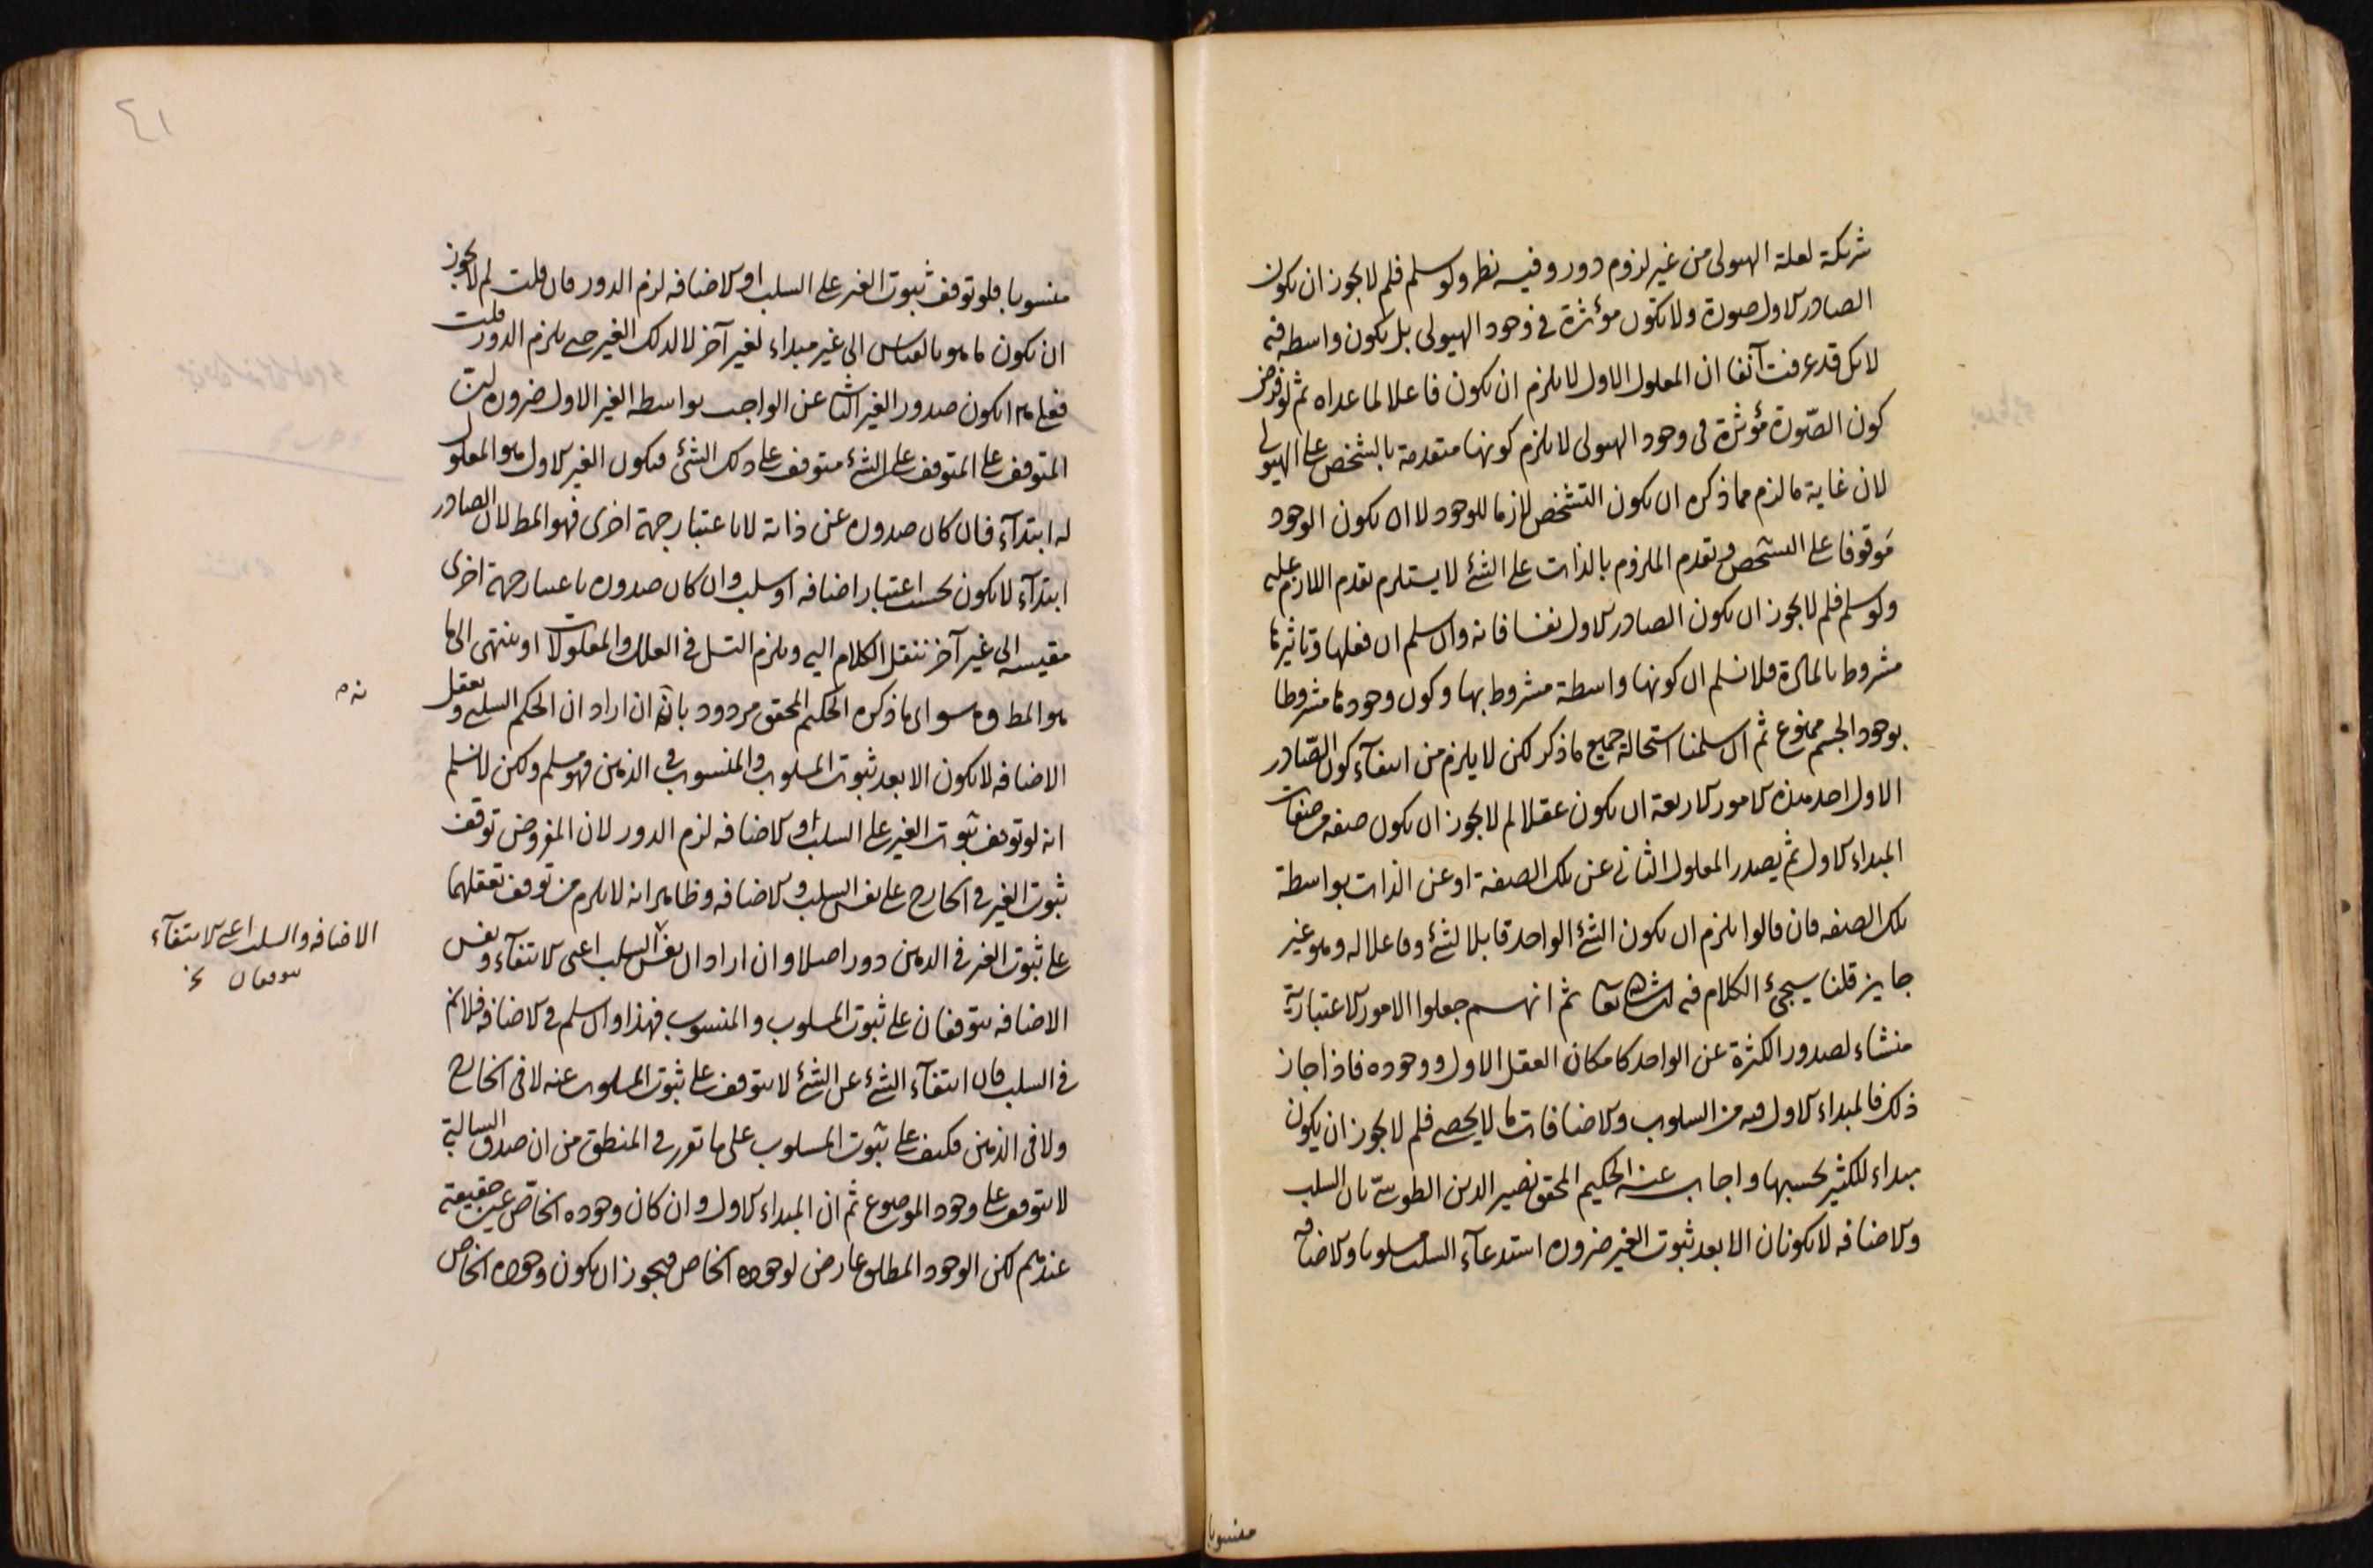 شريكة لعلة الهيولى من غير لزوم دور وفيه نظر ولو سلم فلم لا يجوز ان يكون
الصادر الاول صورة ولا تكون مؤثرة في وجود الهيولى بل يكون واسطة فيه
لا بل قد عرفت آنفا ان المعلول الاول لا يلزم ان يكون فاعلا لما عداه ثم لو فرض
كون الصورة مؤثرة في وجود الهيولى لا يلزم كونها متقدمة بالشخص على الهيولى
لان غاية ما لزم مما ذكره ان يكون التشخص لازما للوجود لا ان يكون الوجود
موقوفا على التشخص وتقدم الملزوم بالذات على الشئ لا يستلزم تقدم اللازم عليه
ولو سلم فلم لا يجوز ان يكون الصادر الاول نفسا فانه وان سلم ان فعلها وتاثيرها
مشروط بالمادة فلا نسلم ان كونها واسطة مشروط بها وكون وجودها مشروطا
بوجود الجسم ممنوع ثم ان سلمنا استحالة جميع ما ذكر لكن لا يلزم من انتفآء كون الصادر
الاول احد هذه الامور الاربعة ان يكون عقلا لم لا يجوز ان يكون صفة من صفات
المبداء الاول ثم يصدر المعلول الثاني عن تلك الصفة او عن الذات بواسطة
تلك الصفه فان قالوا يلزم ان يكون الشئ الواحد قابلا لشئ وفاعلا له وهو غير
جايز قلنا سيجئ الكلام فيه ان شاء الله تعا ثم انهم جعلوا الامور الاعتبارية
منشاء لصدور الكثرة عن الواحد كامكان العقل الاول ووجوده فاذا جاز
ذلك فالمبداء الاول فيه من السلوب والاضافات ما لا يحصى فلم لا يجوز ان يكون
مبداء للكثير بحسبها واجاب عنه الحكيم المحقق نصير الدين الطوسي بان السلب
والاضافه لا يكونان الا بعد ثبوت الغير ضرورة استدعآء السلب مسلوبا والاضافه
منسوبا
٤١
منسوبا فلو توقف ثبوت الغير على السلب او الاضافه لزم الدور فان قلت لم لا يجوز
ان يكون ما هو بالقياس الى غير مبداء لغير آخر لا لذلك الغير حتى يلزم الدور قلت
فعلى هذا يكون صدور الغير الثاني عن الواجب بواسطة الغير الاول ضرورة ان
المتوقف على المتوقف على الشئ متوقف على ذلك الشئ فيكون الغير الاول هو المعلول
له ابتدآء فان كان صدوره عن ذاته لا باعتبار جهة اخرى فهو المط لان الصادر
ابتدآء لا يكون بحسب اعتبار اضافه او سلب وان كان صدوره باعتبار جهة اخرى
مقيسه الى غير آخر ننقل الكلام اليه ويلزم التسل في العلل والمعلولات او ينتهى الى ما
هو المط وما سوا ما ذكره الحكيم المحقق مردود بانه ان اراد ان الحكم السلبي وتعقل
الاضافه لا يكون الا بعد ثبوت المسلوب والمنسوب في الذهن فهو مسلم ولكن لا نسلم
انه لو توقف ثبوت الغير على السلب او الاضافه لزم الدور لان المفروض توقف
ثبوت الغير في الخارج على نفس السلب والاضافه وظاهر انه لا يلزم من توقف تعقلهما
على ثبوت الغير في الذهن دور اصلا وان اراد ان نفس السلب اعنى الانتفآء ونفس
الاضافه يتوقفان على ثبوت المسلوب والمنسوب فهذا وان سلم في الاضافه فلا نم
في السلب فان انتفآء الشئ عن الشئ لا يتوقف على ثبوت المسلوب عنه لا في الخارج
ولا في الذهن فكيف على ثبوت المسلوب على ما تقرر في المنطق من ان صدق السالبة
لا يتوقف على وجود الموضوع ثم ان المبداء الاول وان كان وجوده الخاص عين حقيقته
عندهم لكن الوجود المطلق عارض لوجوده الخاص فيجوز ان يكون وجوده الخاص
الاضافه والسلب اعنى الانتفآء
يتوقفان